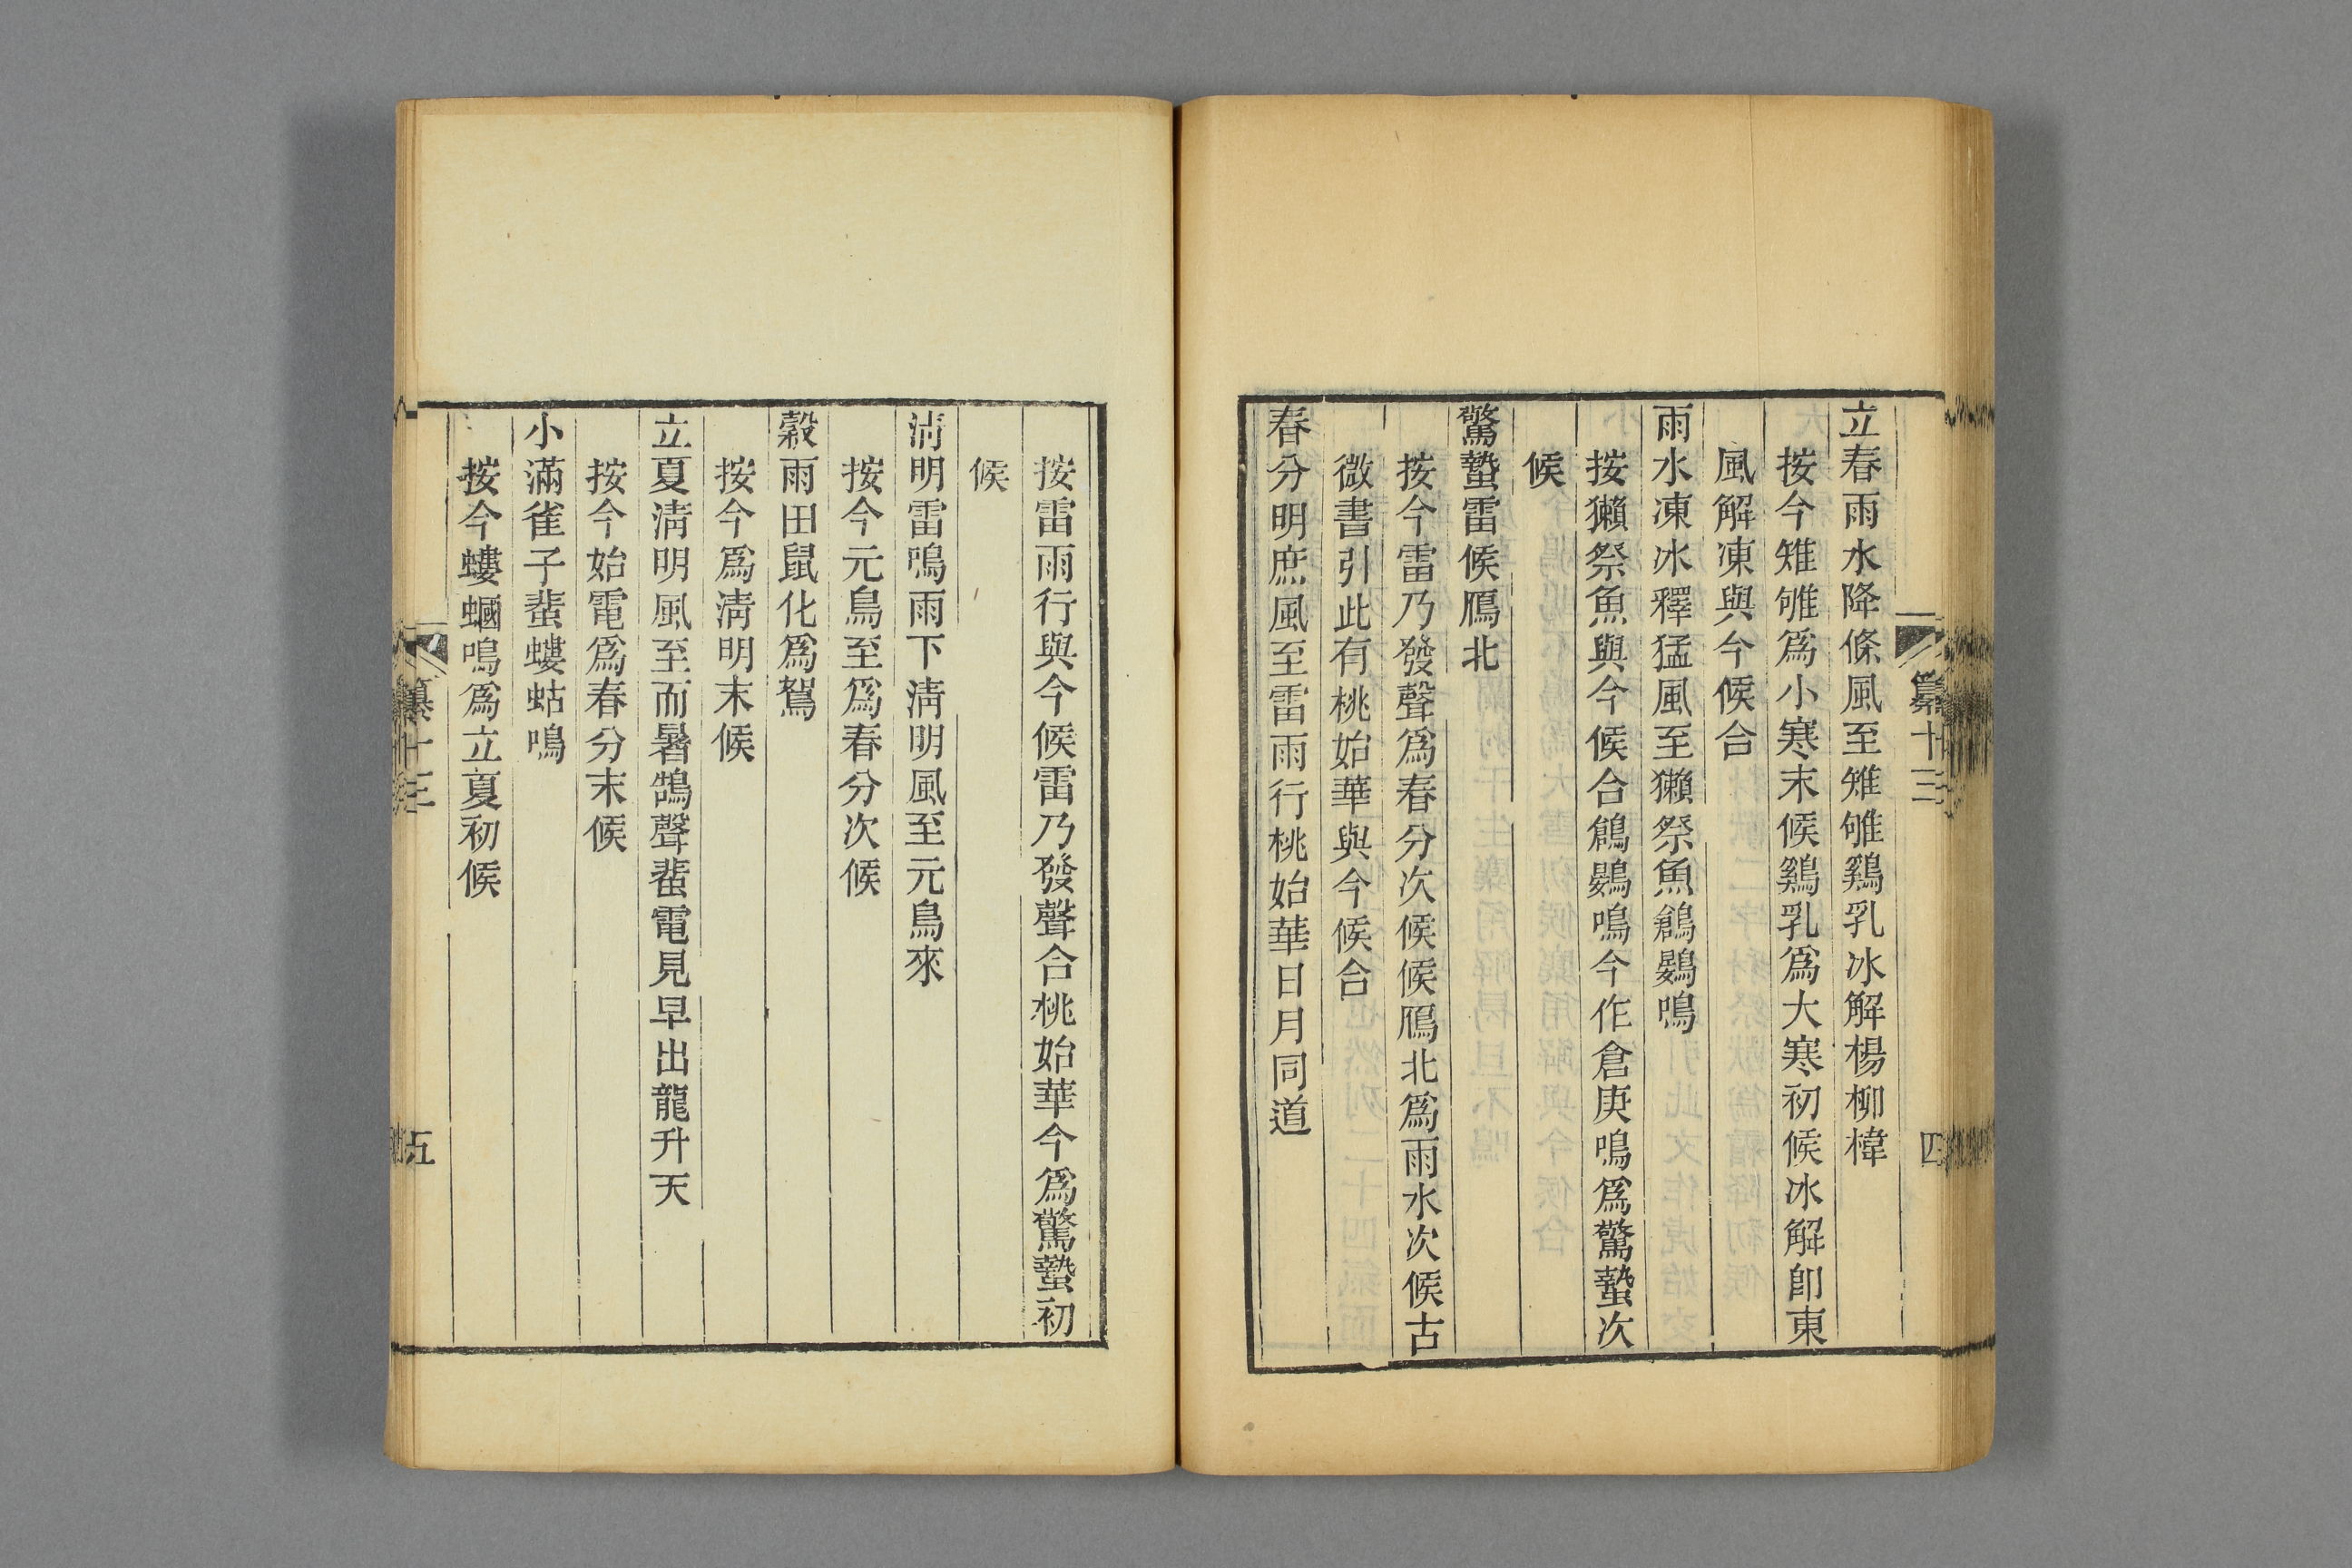 纂十三
四
立春雨水降條風至雉雊鷄乳冰解楊柳樟
按今雉雊爲小寒末候鷄乳爲大寒初候冰解卽東
風解凍與今候合
雨水凍冰釋猛風至獺祭魚鶬鷃鳴
按獺祭魚與今候合鶬鷃鳴今作倉庚鳴爲驚蟄次
候
驚蟄雷候鴈北
按今雷乃發聲爲春分次候候鴈北爲雨水次候古
微書引此有桃始華與今候合
春分明庶風至雷雨行桃始華日月同道
按雷雨行與今候雷乃發聲合桃始華今爲驚蟄初
候
淸明雷鳴雨下淸明風至元鳥來
按今元鳥至爲春分次候
穀雨田鼠化爲鴽
按今爲淸明末候
立夏淸明風至而暑鵠聲蜚電見早出龍升天
按今始電爲春分末候
小滿雀子蜚螻蛄鳴
按今螻蟈鳴爲立夏初候
纂十三
五